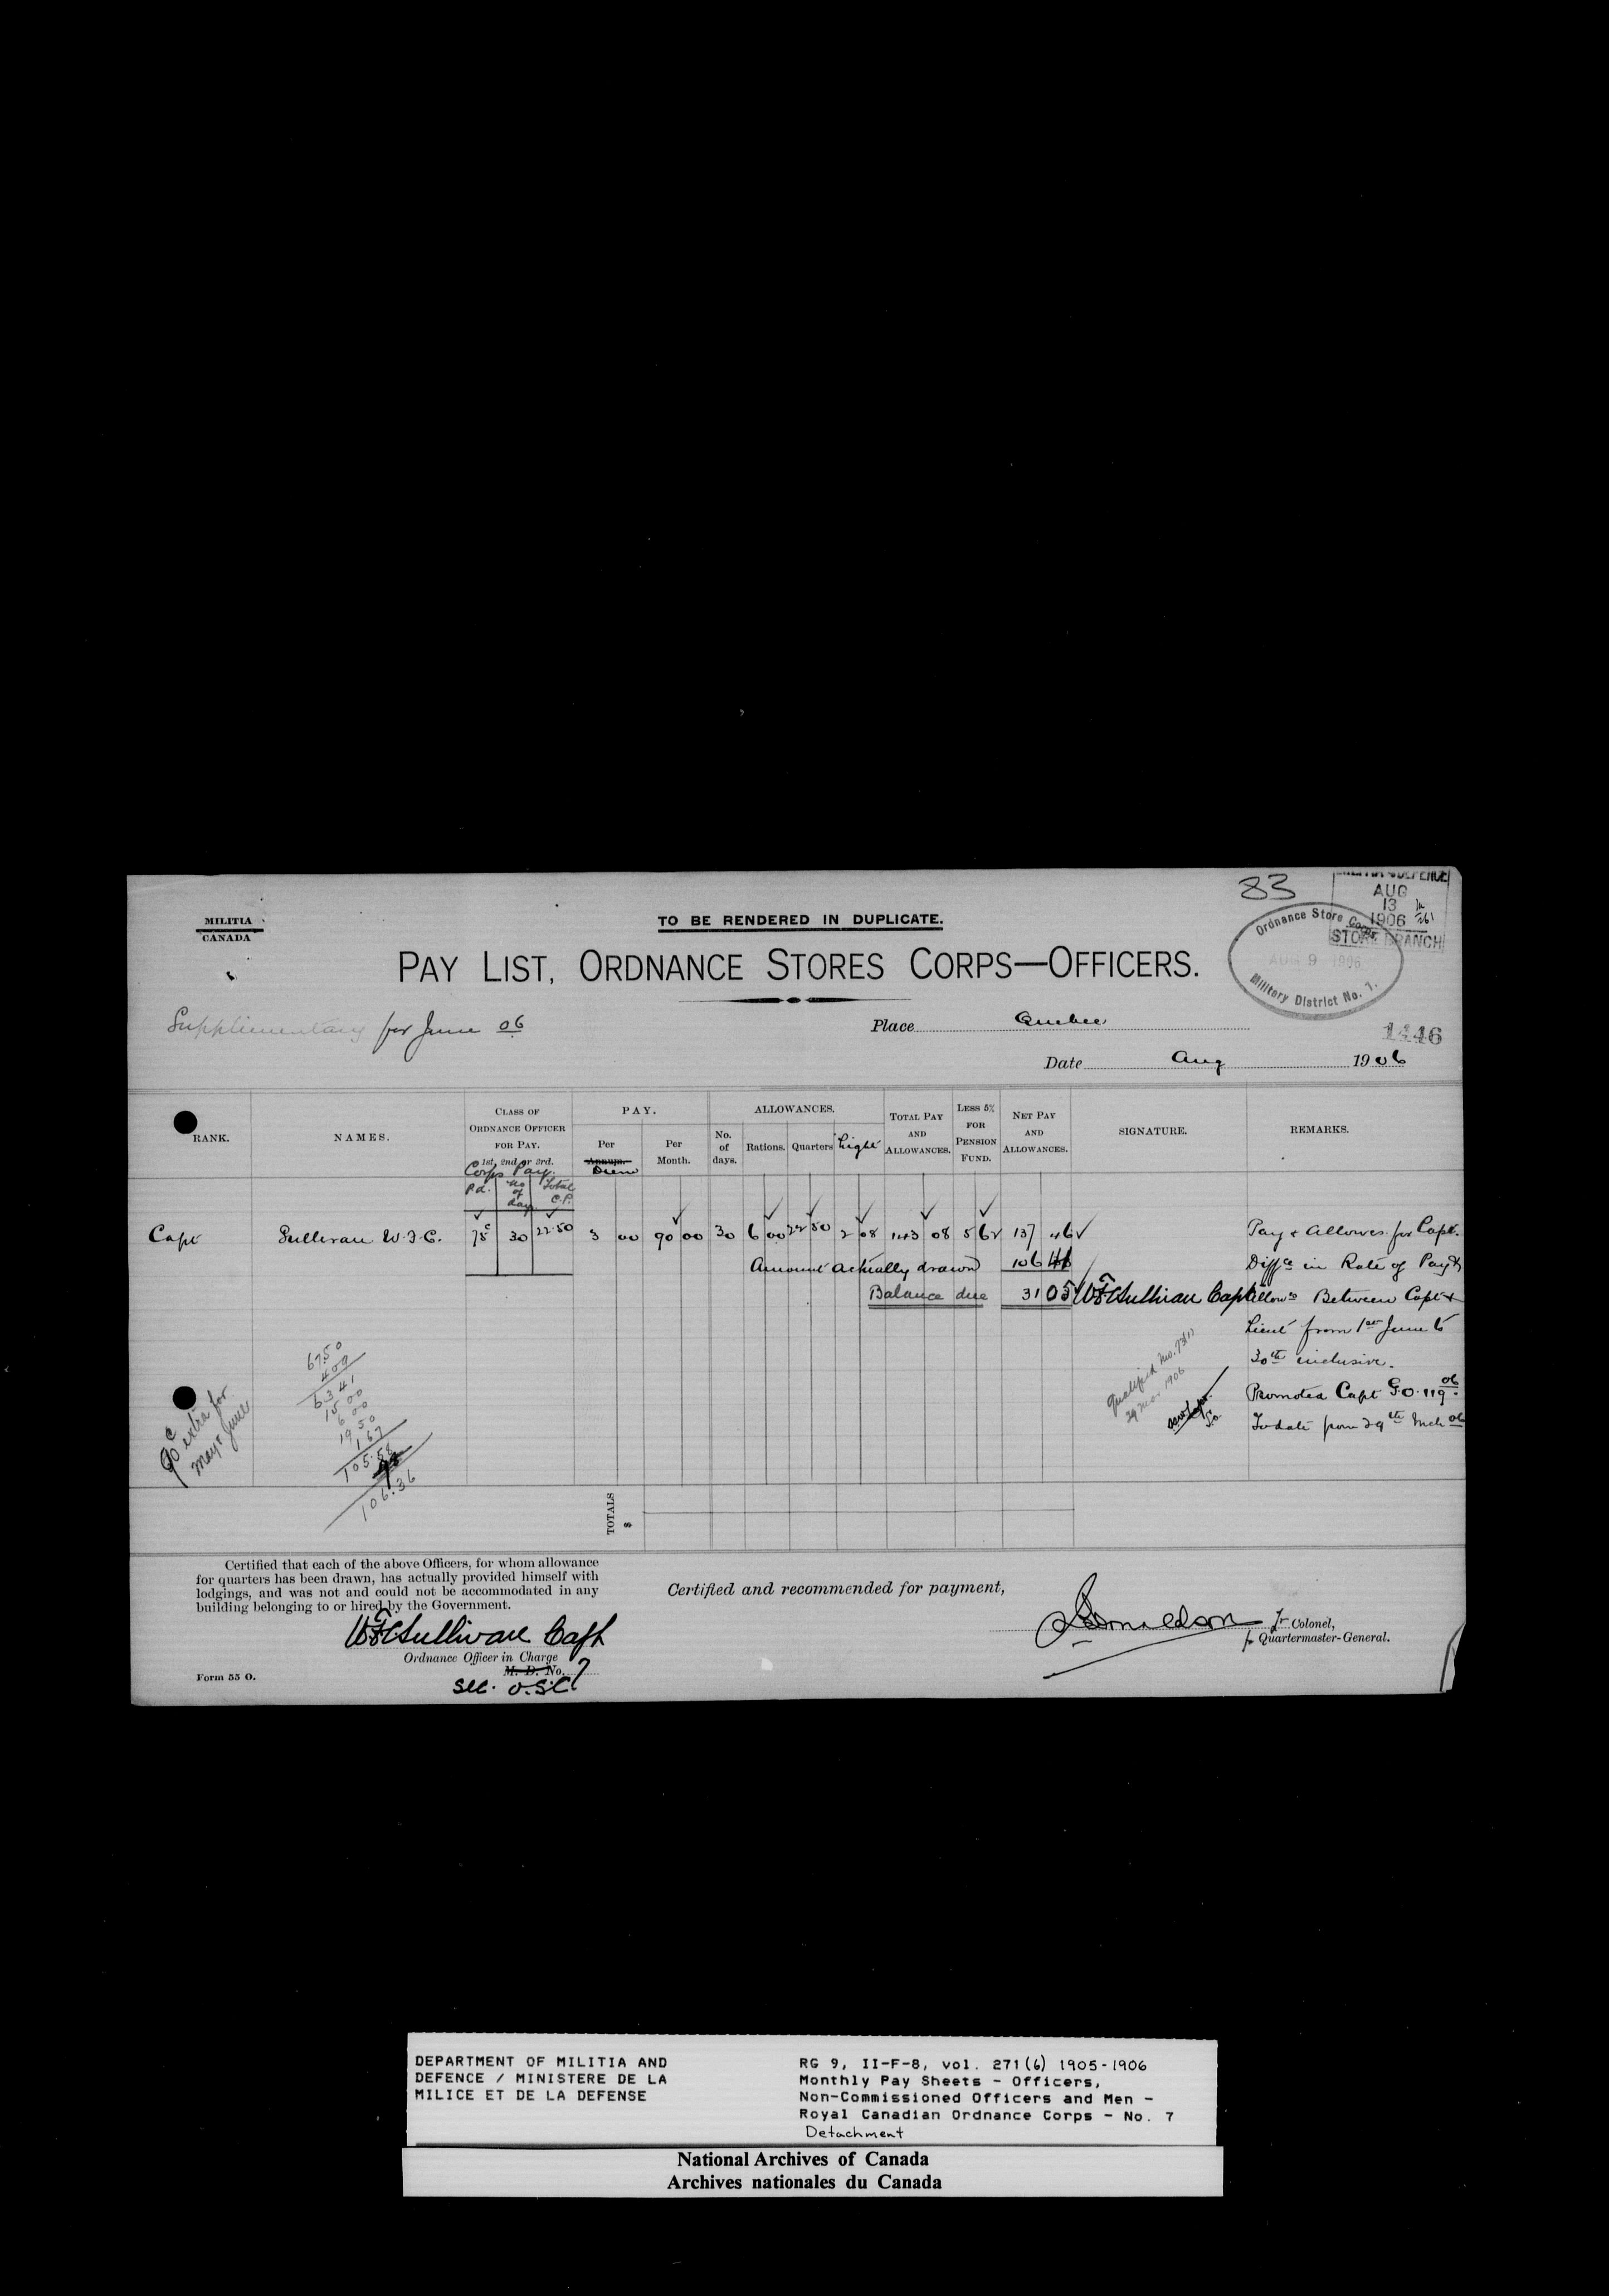 83
MILITIA & DEFENCE
AUG
13
1906
STORE BRANCH
Ordnance Store Corps
AUG 9 1906
Military District No. 7.
MILITIA
CANADA
TO BE RENDERED IN DUPLICATE.
PAY LIST, ORDNANCE STORES CORPS—OFFICERS.
Supplimentary for June 06
Place Quebec
1446
Date Aug 1906
RANK.
NAMES.
CLASS OF ORDNANCE OFFICER FOR PAY.
1st, 2nd or 3rd.
Corps Pay.
P.d. No of days Total C.P.
PAY.
Per Annum. Diem
Per Month.
No. of days.
ALLOWANCES.
Rations. Quarters Light
TOTAL PAY AND ALLOWANCES.
LESS 5% FOR PENSION FUND.
NET PAY AND ALLOWANCES.
SIGNATURE.
REMARKS.
Capt Sullivan W.F.C. 75c 30 22.50 3 00 90 00 30 6 00 22 50 2 08 143 08 5 62 137 46 Pay & Allowces. for Capt.
Amount actually drawn 106 41 Diffce in Rate of Pay &
Balance due 31 05 WFC Sullivan Capt Allowcs Between Capt &
Lieut from 1st June to
30th inclusive.
Promoted Capt G.O. 119 06
To date from 29th Mch 06
Qualified
29 Mar 1906
90c extra for
May & June
67.50
4.09
63.41
15 00
6 00
19 50
1 67
105.58
106.36
TOTALS $
Certified that each of the above Officers, for whom allowance
for quarters has been drawn, has actually provided himself with
lodgings, and was not and could not be accommodated in any
building belonging to or hired by the Government.
WFC Sullivan Capt
Ordnance Officer in Charge
M. D. No. 7
Sec. O.S.C.
Form 55 O.
Certified and recommended for payment,
Colonel,
for Quartermaster-General.
DEPARTMENT OF MILITIA AND
DEFENCE / MINISTERE DE LA
MILICE ET DE LA DEFENSE
RG 9, II-F-8, vol. 271(6) 1905-1906
Monthly Pay Sheets - Officers,
Non-Commissioned Officers and Men -
Royal Canadian Ordnance Corps - No. 7
Detachment
National Archives of Canada
Archives nationales du Canada